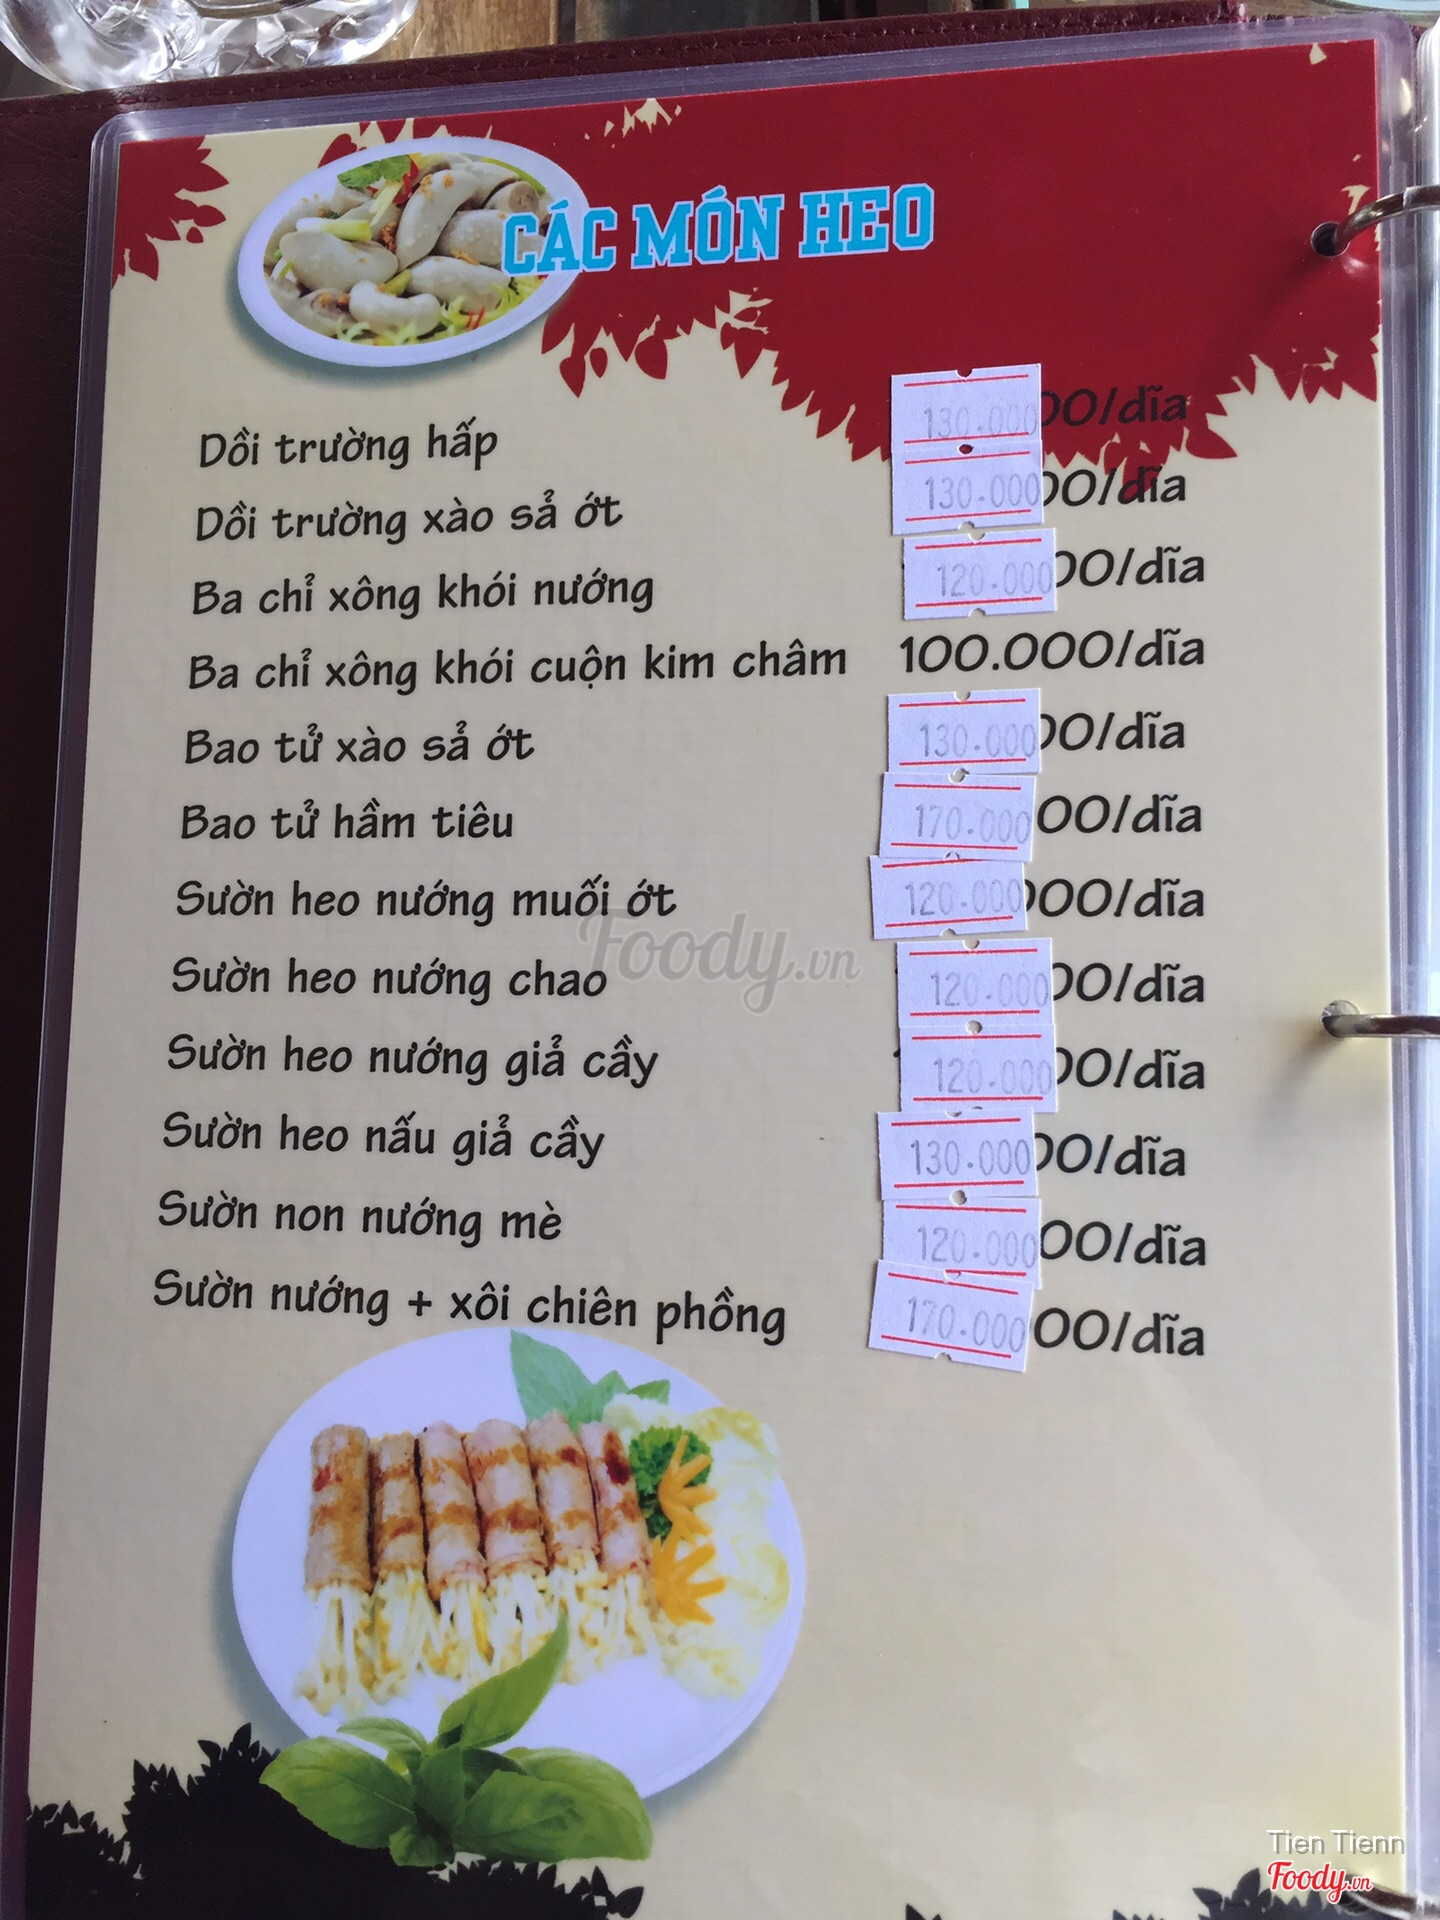 CÁC MÓN HEO
Dồi trường hấp 130.000 00/dĩa
Dồi trường xào sả ớt 130.000 00/dĩa
Ba chỉ xông khói nướng 120.000 00/dĩa
Ba chỉ xông khói cuộn kim châm 100.000/dĩa
Bao tử xào sả ớt 130.000 00/dĩa
Bao tử hầm tiêu 170.000 00/dĩa
Sườn heo nướng muối ớt 120.000 000/dĩa
Sườn heo nướng chao 120.000 00/dĩa
Sườn heo nướng giả cầy 120.000 00/dĩa
Sườn heo nấu giả cầy 130.000 00/dĩa
Sườn non nướng mè 120.000 00/dĩa
Sườn nướng + xôi chiên phồng 170.000 00/dĩa
Foody.vn
Tien Tienn
Foody.vn